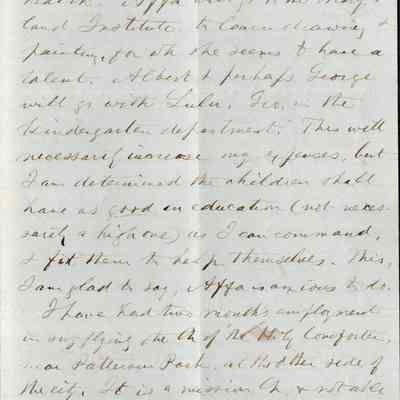 land Institute to learn drawing &
painting, for wh she seems to have a
talent. Albert & perhaps George
will go with Lulu, Geo. in the
Kindergarten department. This will
necessarily increase my expenses, but
I am determined the children shall
have as good an education (not neces-
sarily a high one) as I can command,
& fit them to help themselves. This,
I am glad to say, Affa is anxious to do.
I have had two months employment
in supplying the Ch of the Holy Comforter,
near Patterson Park, at the other side of
the city. It is a mission Ch. & not able